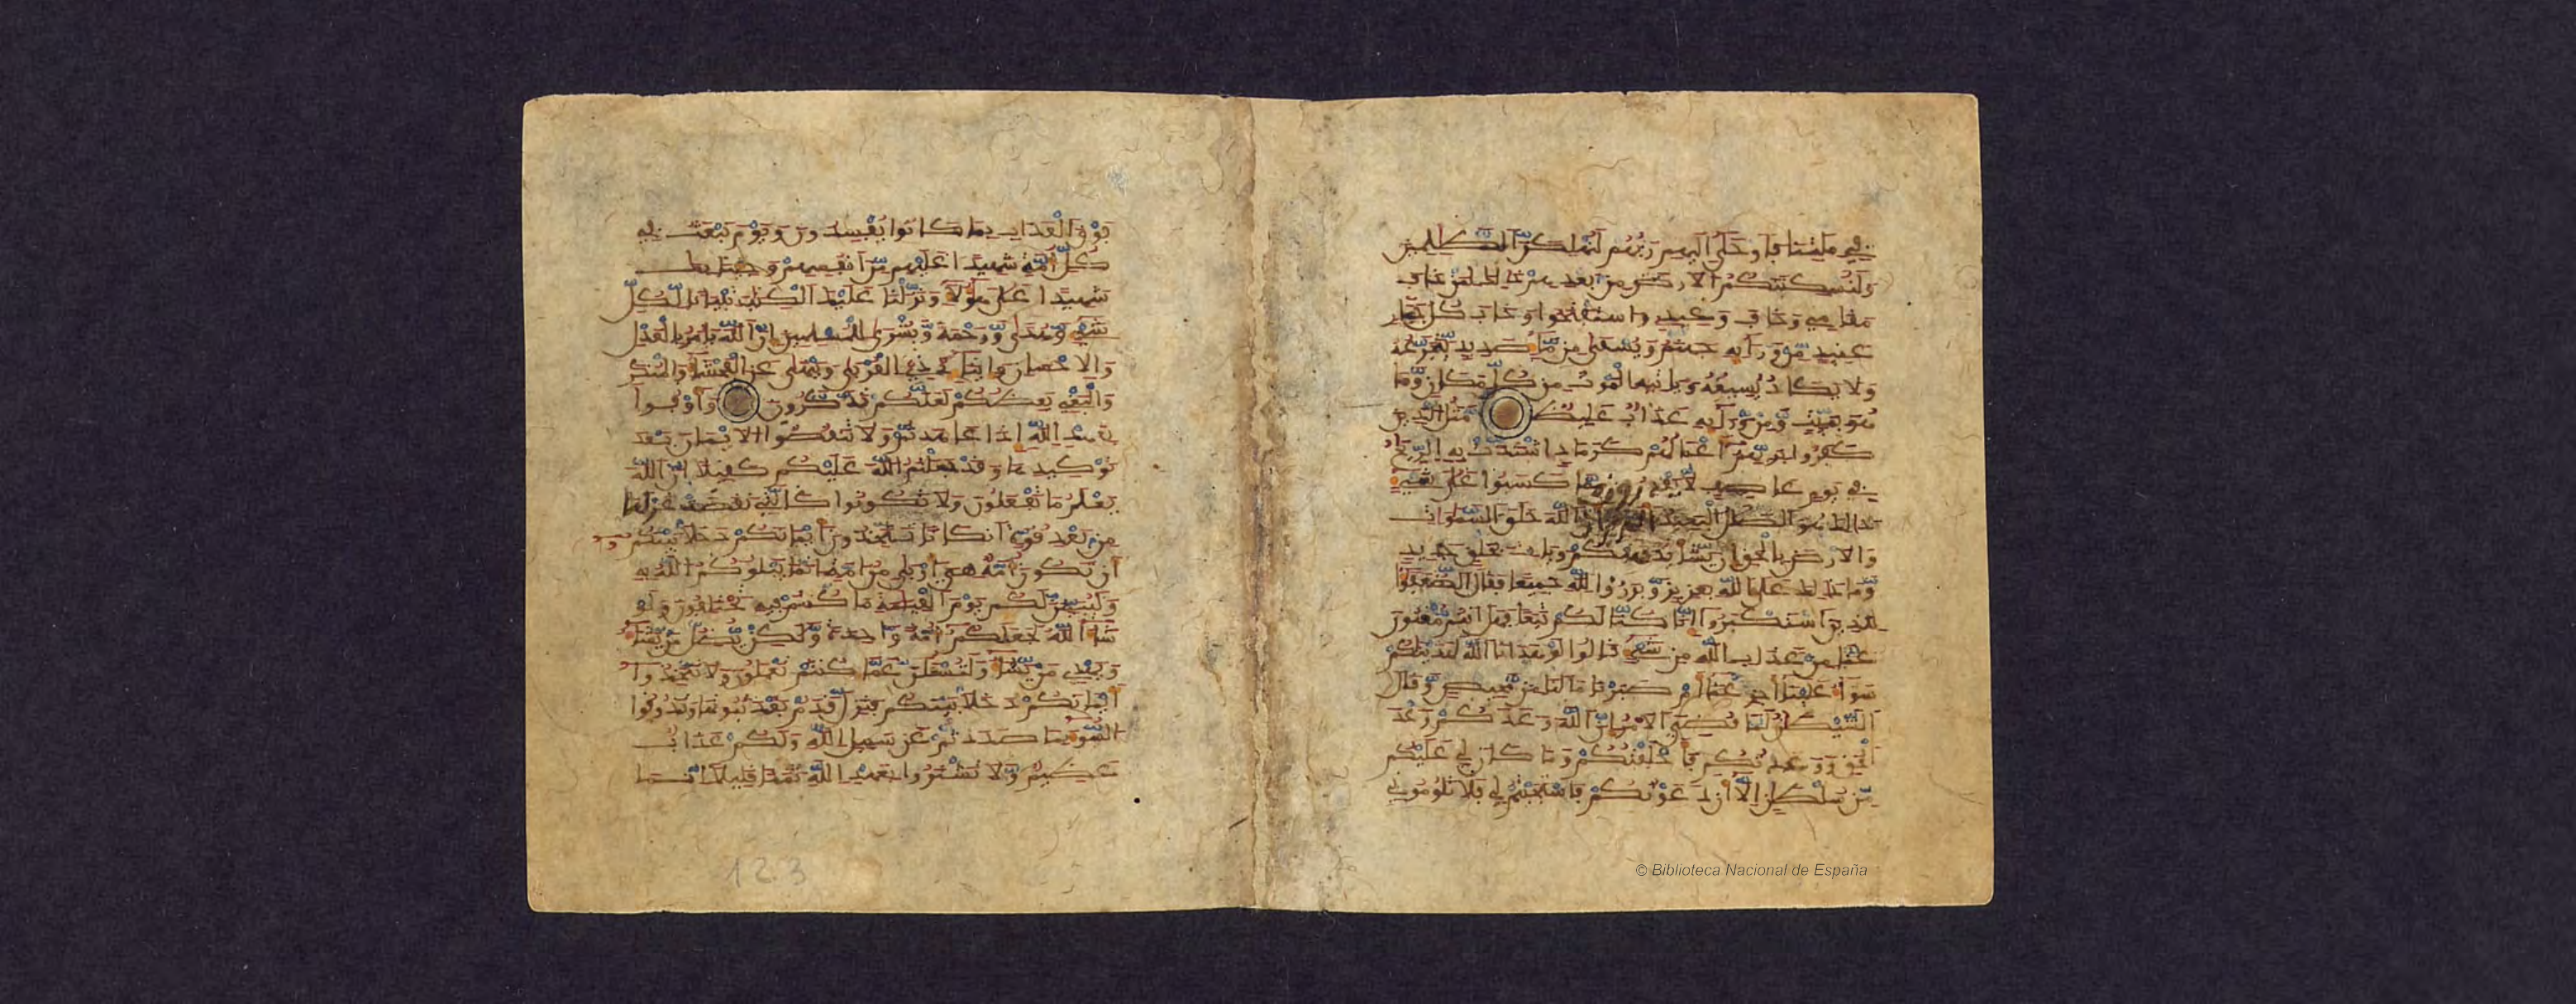 في ملتنا فأوحى إليهم ربهم لنهلكن الظلمين
ولنسكننكم الارض من بعدهم ذلك لمن خاف
مقامي وخاف وعيد واستفتحوا وخاب كل جبار
عنيد من ورائه جهنم ويسقى من ماء صديد يتجرعه
ولا يكاد يسيغه وياتيه الموت من كل مكان وما
هو بميت ومن ورائه عذاب غليظ مثل الذين
كفروا بربهم أعمالهم كرماد اشتدت به الريح
في يوم عاصف لا يقدرون مما كسبوا على شيء
ذلك هو الضلل البعيد ألم تر أن الله خلق السموات
والارض بالحق إن يشأ يذهبكم ويات بخلق جديد
وما ذلك على الله بعزيز وبرزوا لله جميعا فقال الضعفؤا
للذين استكبروا إنا كنا لكم تبعا فهل أنتم مغنون
عنا من عذاب الله من شيء قالوا لو هدانا الله لهديناكم
سواء علينا أجزعنا أم صبرنا ما لنا من محيص وقال
الشيطن لما قضي الامر إن الله وعدكم وعد
الحق ووعدتكم فأخلفتكم وما كان لي عليكم
من سلطن إلا أن دعوتكم فاستجبتم لي فلا تلوموني
فوق العذاب بما كانوا يفسدون ويوم نبعث في
كل أمة شهيدا عليهم من أنفسهم وجئنا بك
شهيدا على هؤلاء ونزلنا عليك الكتب تبيانا لكل
شيء وهدى ورحمة وبشرى للمسلمين إن الله يامر بالعدل
والاحسان وإيتاء ذي القربى وينهى عن الفحشاء والمنكر
والبغي يعظكم لعلكم تذكرون وأوفوا
بعهد الله إذا عاهدتم ولا تنقضوا الايمان بعد
توكيدها وقد جعلتم الله عليكم كفيلا إن الله
يعلم ما تفعلون ولا تكونوا كالتي نقضت غزلها
من بعد قوة أنكاثا تتخذون أيمانكم دخلا بينكم
أن تكون أمة هي أربى من أمة إنما يبلوكم الله به
وليبينن لكم يوم القيمة ما كنتم فيه تختلفون ولو
شاء الله لجعلكم أمة واحدة ولكن يضل من يشاء
ويهدي من يشاء ولتسئلن عما كنتم تعملون ولا تتخذوا
أيمانكم دخلا بينكم فتزل قدم بعد ثبوتها وتذوقوا
السوء بما صددتم عن سبيل الله ولكم عذاب
عظيم ولا تشتروا بعهد الله ثمنا قليلا انما
123
© Biblioteca Nacional de España